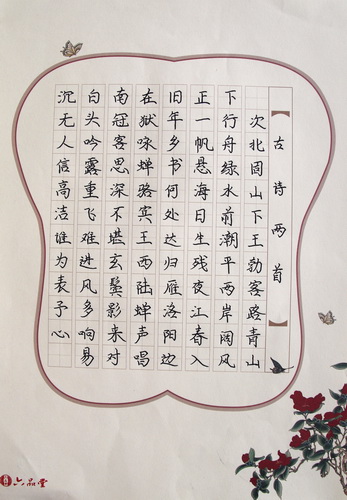 古诗两首
次北固山下王勃客路青山
下行舟绿水前潮平两岸阔风
正一帆悬海日生残夜江春入
旧年乡书何处达归雁洛阳边
在狱咏蝉骆宾王西陆蝉声唱
南冠客思深不堪玄鬓影来对
白头吟露重飞难进风多响易
沉无人信高洁谁为表予心
六品堂